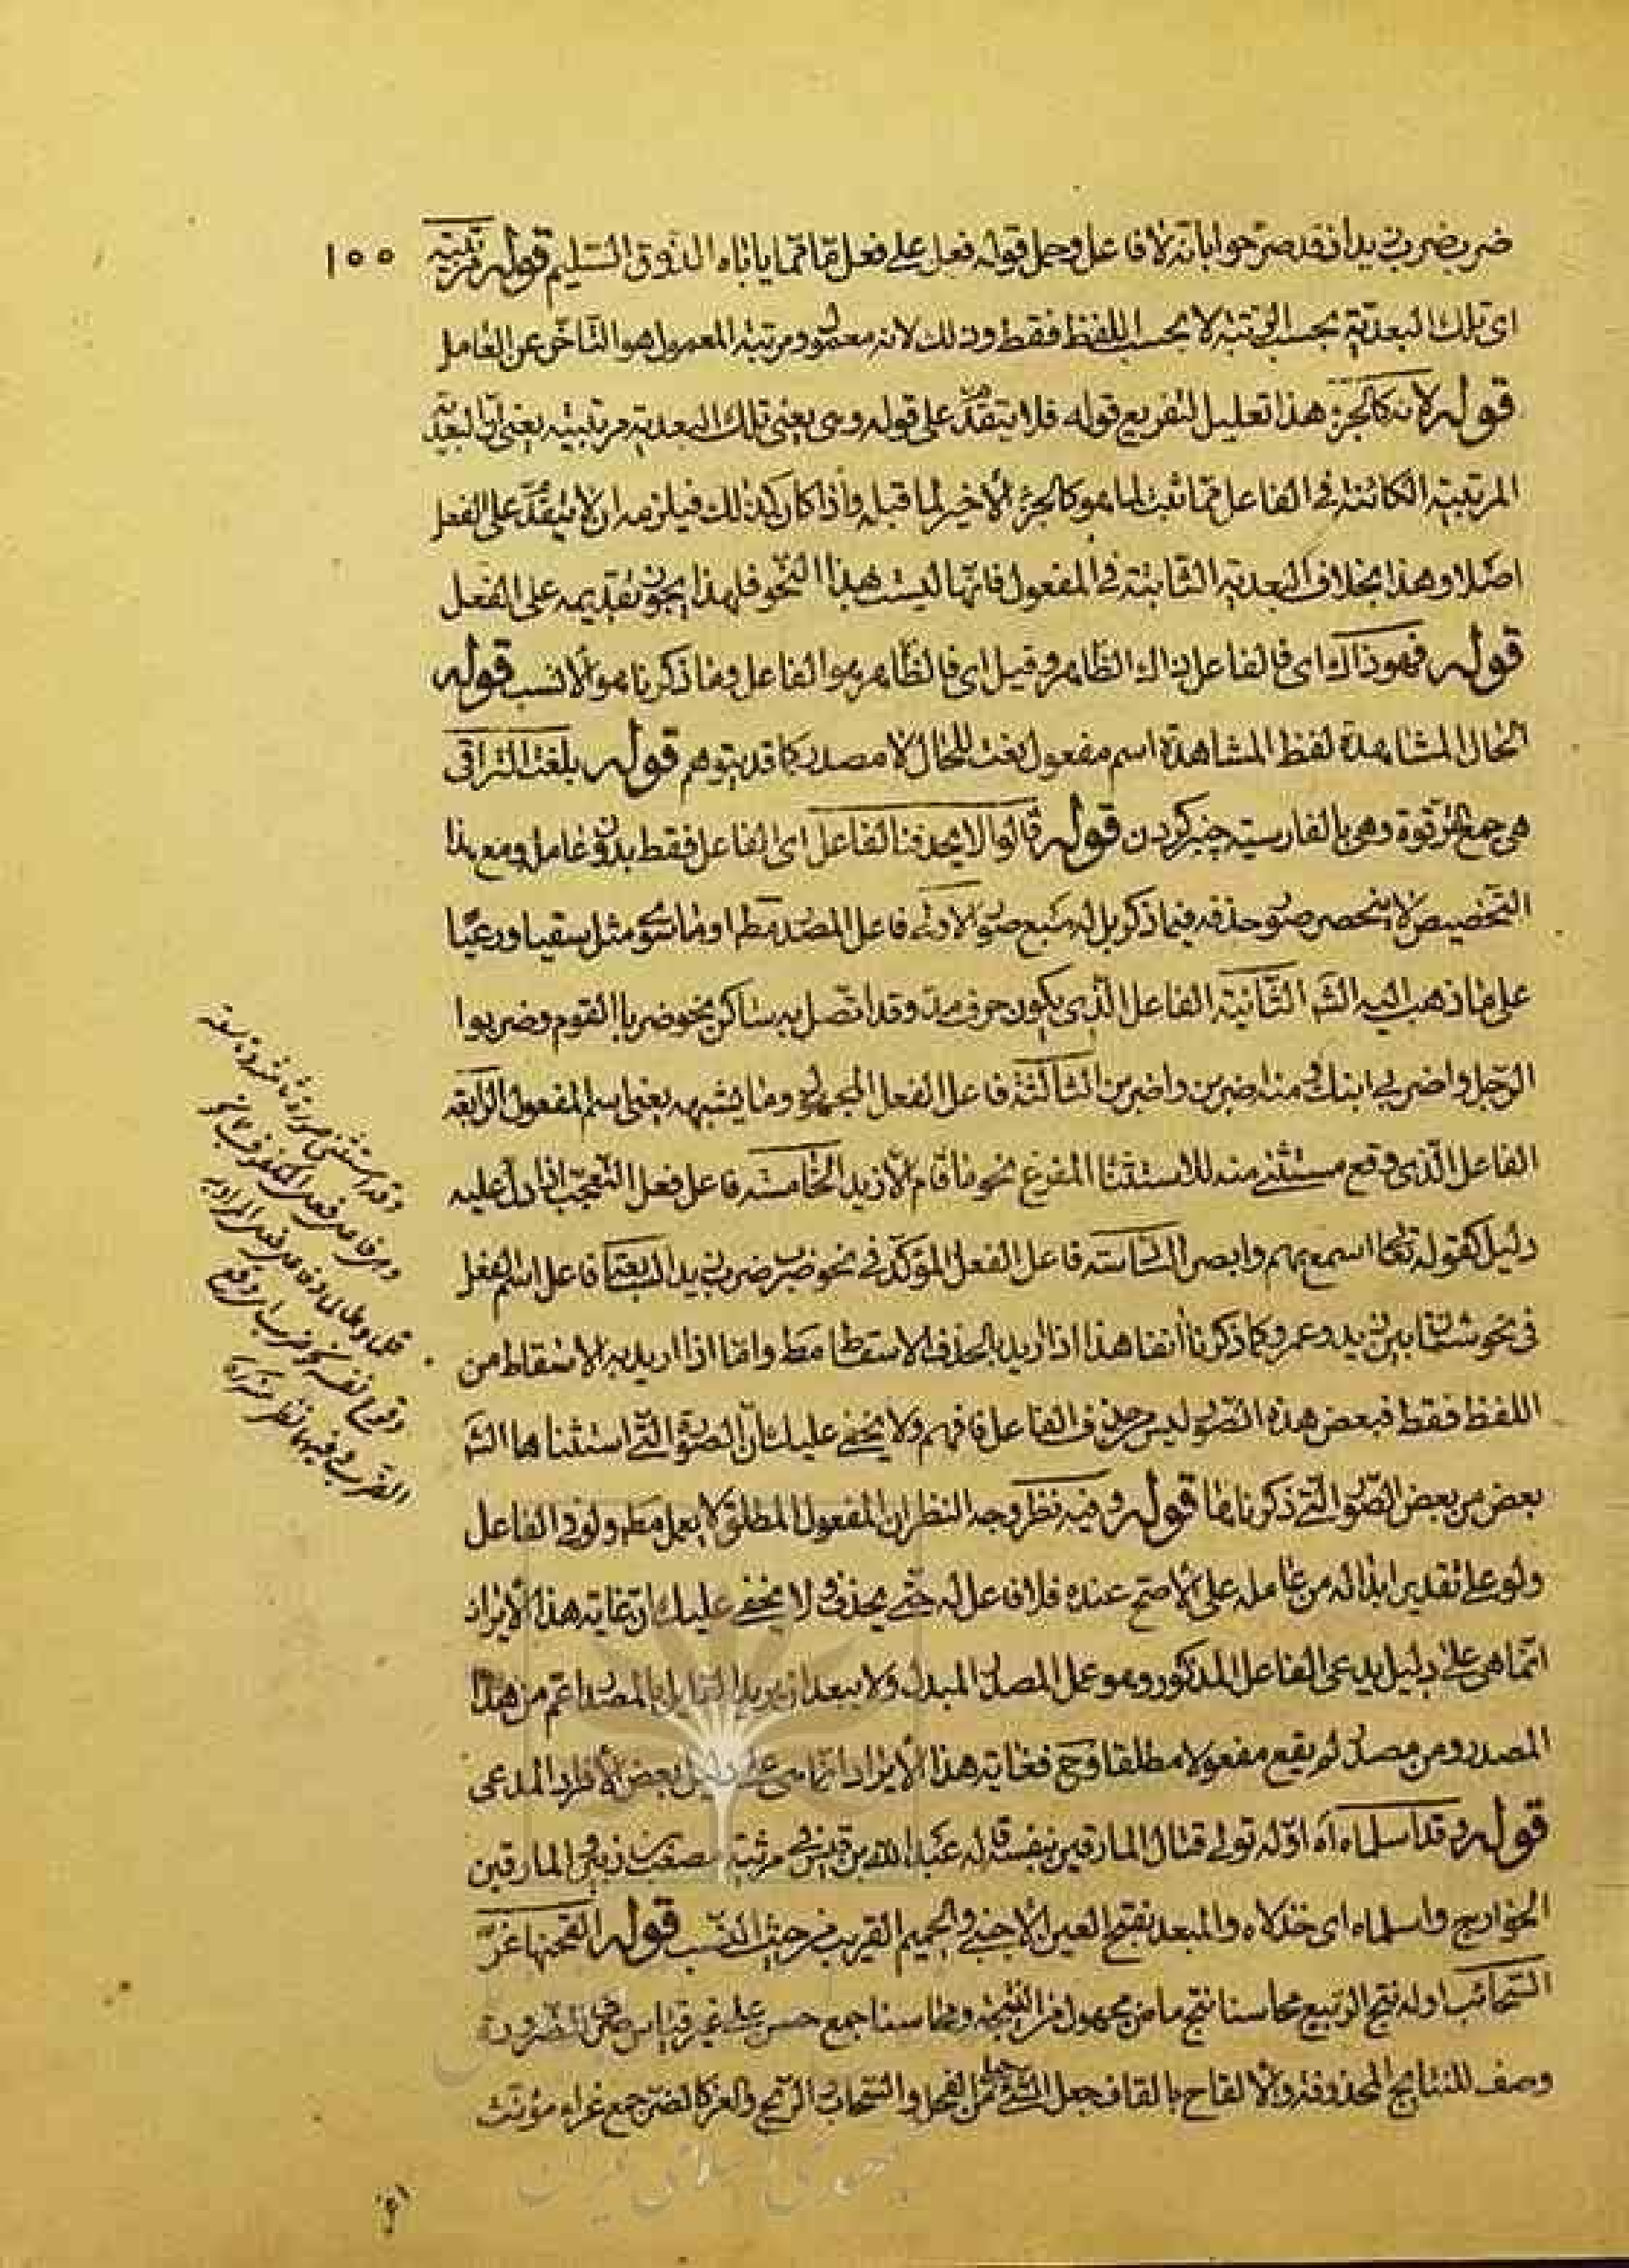 ضرب ضرب زيد اذ قد صرحوا بانه لا فاعل وحمل قوله فعل على فعل ما مما ياباه الذوق السليم قوله مرتبته
١٥٥
اى تلك البعدية بحسب المرتبة لا بحسب اللفظ فقط وذلك لانه معمول ومرتبة المعمول هو التأخر عن العامل
قوله لانه كالجزء هذا تعليل لتفريع قوله فلا يتقدم على قوله وهى يعنى تلك البعدية مرتبية يعنى ان البعدية
المرتبية الكائنة فى الفاعل مما ثبت لما هو كالجزء الاخير لما قبله واذا كان كذلك فيلزمه ان لا يتقدم على الفعل
اصلا وهذا بخلاف البعدية الثابتة فى المفعول فانها ليست بهذا النحو فلهذا يجوز تقديمه على الفعل
قوله فهو ذاك اى فالفاعل ذاك الظاهر وقيل اى فالظاهر هو الفاعل وما ذكرنا هو الانسب قوله
الحال المشاهدة لفظ المشاهدة اسم مفعول نعت للحال لا مصدر كما قد يتوهم قوله بلغت التراقى
هى جمع الترقوة وهى بالفارسية چنبر گردن قوله قالوا لا يحذف الفاعل اى الفاعل فقط بدون عامله ومع هذا
التخصيص لا ينحصر صور حذفه فيما ذكر بل له سبع صور الاولى فاعل المصدر مط او ما سوى مثل سقيا ورعيا
على ما ذهب اليه الشم الثانية الفاعل الذى يكون حرف مد وقد اتصل به ساكن نحو ضربا القوم وضربوا
الرجل واضربى ابنك ومنه اضربن واضربن الثالثة فاعل الفعل المجهول وما يشبهه يعنى اسم المفعول الرابعة
الفاعل الذى وقع مستثنى منه للاستثناء المفرغ نحو ما قام الا زيد الخامسة فاعل فعل التعجب اذا دل عليه
دليل كقوله تعالى اسمع بهم وابصر السادسة فاعل الفعل المؤكد فى نحو ضرب ضرب زيد السابعة فاعل اسم الفعل
فى نحو شتان بين زيد وعمرو كما ذكرنا انفا هذا اذا اريد بالحذف الاسقاط مط واما اذا اريد به الاسقاط من
اللفظ فقط فبعض هذه الصور ليس من حذف الفاعل فافهم ولا يخفى عليك ان الصور التى استثناها الشم
بعض من بعض الصور التى ذكرناها قوله وفيه نظر وجه النظر ان المفعول المطلق لا يعمل مط ولو فى الفاعل
ولو على تقدير ابداله من عامله على الاصح عنده فلا فاعل له حتى يحذف ولا يخفى عليك ان غاية هذا الايراد
انما هى على دليل يدعى الفاعل المذكور وهو عمل المصدر المبدل ولا يبعد ان يريد القايل بالمصدر اعم من هذا
المصدر ومن مصدر لم يقع مفعولا مطلقا وح فغاية هذا الايراد انما هى على دليل بعض الافراد المدعى
قوله وقد اسلماه اه اوله تولى قتال المارقين بنفسه قاله عبد الله بن قيس فى مرثية مصعب بن زبير والمارقين
الخوارج واسلماه اى خذلاه والمبعد بفتح العين الاجنبى والحميم القريب من حيث النسب قوله القحنها غر
السحائب اوله نتج الربيع محاسنا نتج ماض مجهول من النتيجة ومحاسنا جمع حسن على غير قياس للضرورة
وصف للنتايج المحذوفة والالقاح بالقاف جعل الشئ حاملا من الفحل والسحاب الريح والغر كالضر جمع غراء مؤنث